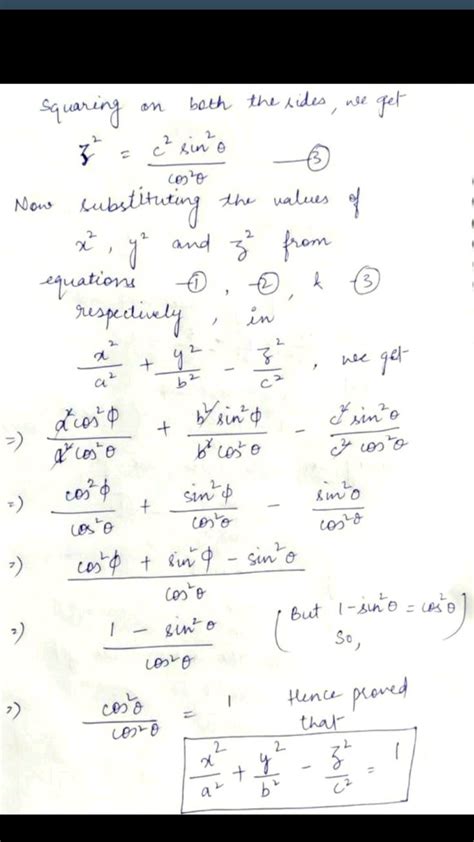 Squaring on both the sides, we get
z² = c² sin²θ / cos²θ —③
Now substituting the values of
x², y² and z² from
equations -①, -②, & -③
respectively, in
x²/a² + y²/b² - z²/c², we get
=) a²cos²φ/a²cos²θ + b²sin²φ/b²cos²θ - c²sin²θ/c²cos²θ
=) cos²φ/cos²θ + sin²φ/cos²θ - sin²θ/cos²θ
=) cos²φ + sin²φ - sin²θ / cos²θ
=) 1 - sin²θ / cos²θ (But 1-sin²θ = cos²θ)
So,
=) cos²θ/cos²θ = 1 Hence proved
that
x²/a² + y²/b² - z²/c² = 1